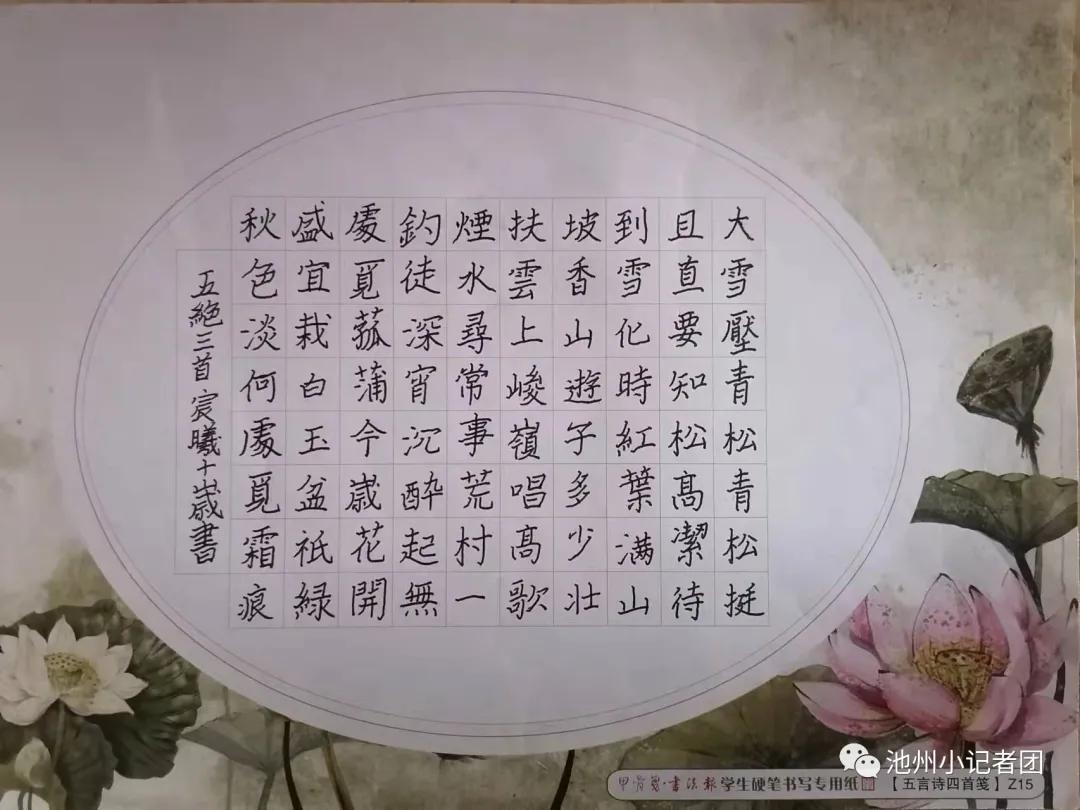 大雪壓青松青松挺
且直要知松髙潔待
到雪化時紅葉满山
坡香山遊子多少壯
扶雲上峻嶺唱髙歌
煙水尋常事荒村一
釣徒深宵沉醉起無
處覓菰蒲今歲花開
盛宜栽白玉盆祇緑
秋色淡何處覓霜痕
五絕三首 宸曦十歲書
池州小记者团
书法报 学生硬笔书写专用纸 【五言诗四首笺】Z15